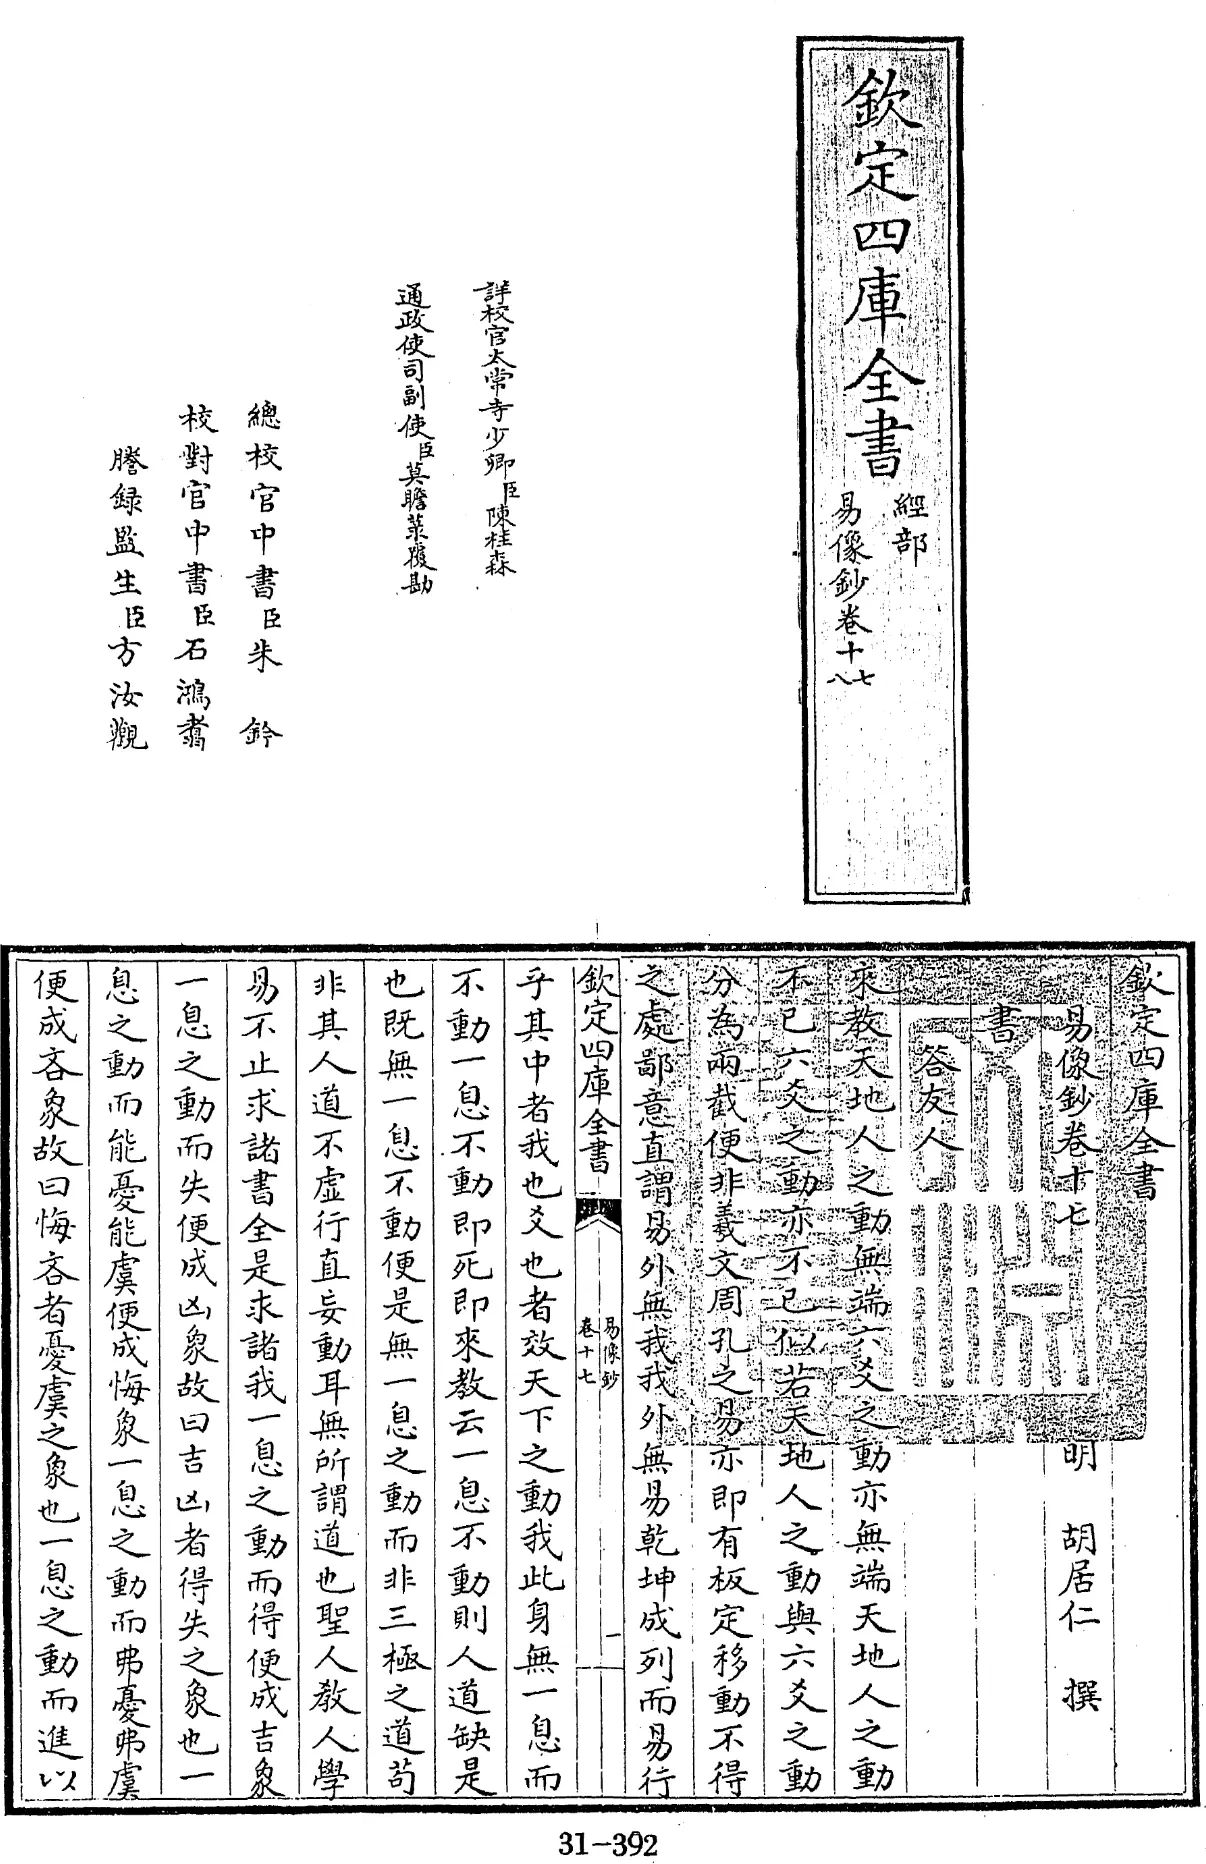 欽定四庫全書
經部
易像鈔卷十七
八
詳校官太常寺少卿臣陳桂森
通政使司副使臣莫瞻菉覆勘
總校官中書臣朱鈐
校對官中書臣石鴻翥
謄録監生臣方汝觀
欽定四庫全書
易像鈔卷十七　明　胡居仁　撰
書
答友人
來教天地人之動無端六爻之動亦無端天地人之動
不已六爻之動亦不已似若天地人之動與六爻之動
分為兩截便非羲文周孔之易亦即有板定移動不得
之處鄙意直謂易外無我我外無易乾坤成列而易行
欽定四庫全書
易像鈔
卷十七
一
乎其中者我也爻也者效天下之動我此身無一息而
不動一息不動即死即來教云一息不動則人道缺是
也既無一息不動便是無一息之動而非三極之道苟
非其人道不虛行直妄動耳無所謂道也聖人教人學
易不止求諸書全是求諸我一息之動而得便成吉象
一息之動而失便成凶象故曰吉凶者得失之象也一
息之動而能憂能虞便成悔象一息之動而弗憂弗虞
便成吝象故曰悔吝者憂虞之象也一息之動而進以
31-392